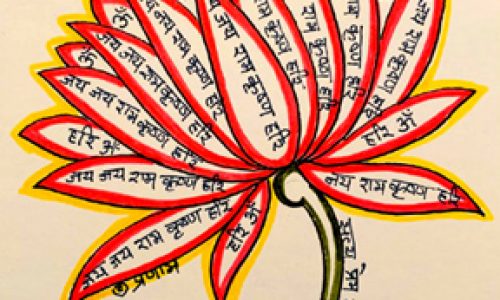 ॐ
जय जय राम कृष्ण हरि
जय जय राम कृष्ण हरि
जय जय राम कृष्ण हरि
हरि ॐ
जय जय राम कृष्ण हरि
जय जय राम कृष्ण हरि
हरि ॐ
जय राम कृष्ण हरि
राम कृष्ण हरि
राम कृष्ण हरि
जय राम कृष्ण हरि
हरि ॐ
जय राम कृष्ण हरि
प्रणाम
सत्य प्रेम